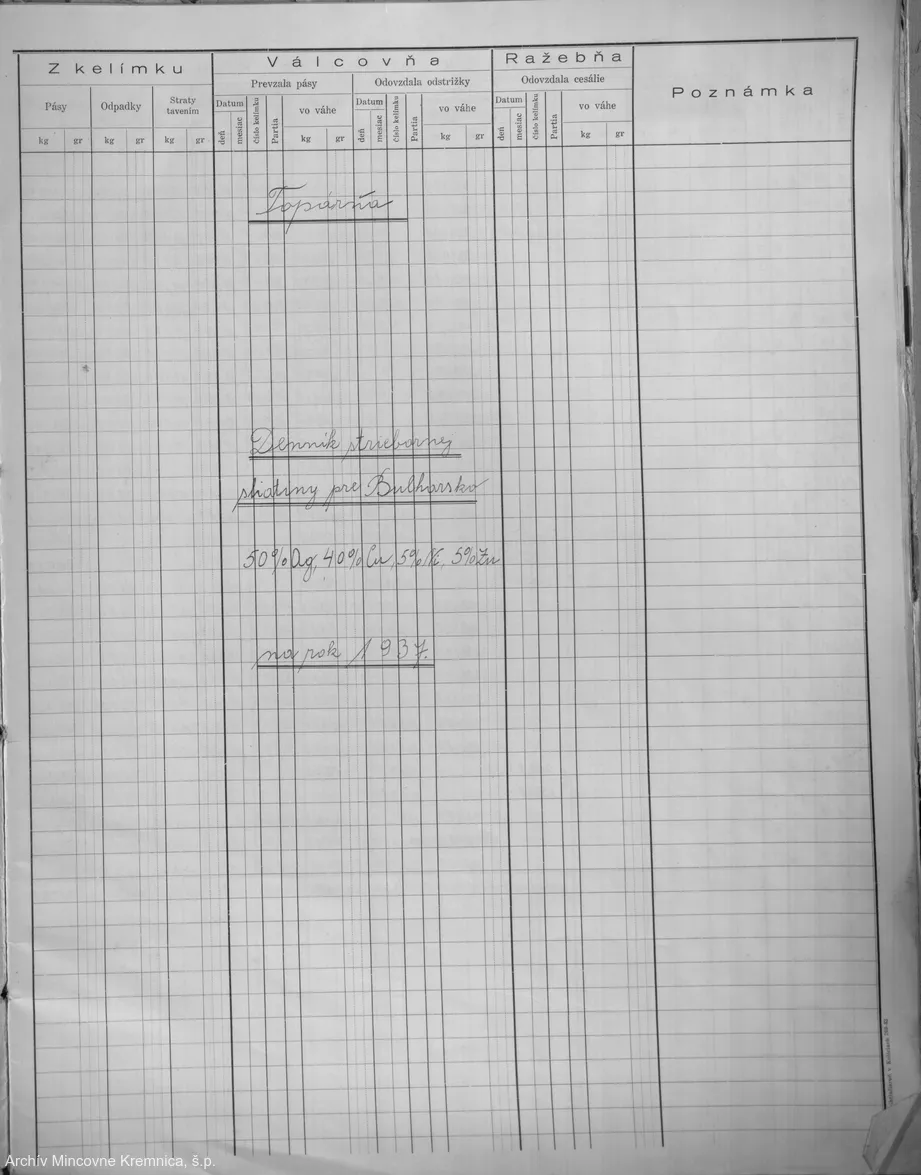 Z kelímku
Válcovňa
Ražebňa
Poznámka
Prevzala pásy
Odovzdala odstrižky
Odovzdala cesálie
Pásy
Odpadky
Straty tavením
Datum
číslo kelímku
Partia
vo váhe
Datum
číslo kelímku
Partia
vo váhe
Datum
číslo kelímku
Partia
vo váhe
kg gr kg gr kg gr
deň mesiac kg gr
deň mesiac kg gr
deň mesiac kg gr
Topárňa
Denník striebornej
sliatiny pre Bulharsko
50% Ag, 40% Cu, 5% Ni, 5% Zn
na rok 1937.
Archív Mincovne Kremnica, š.p.